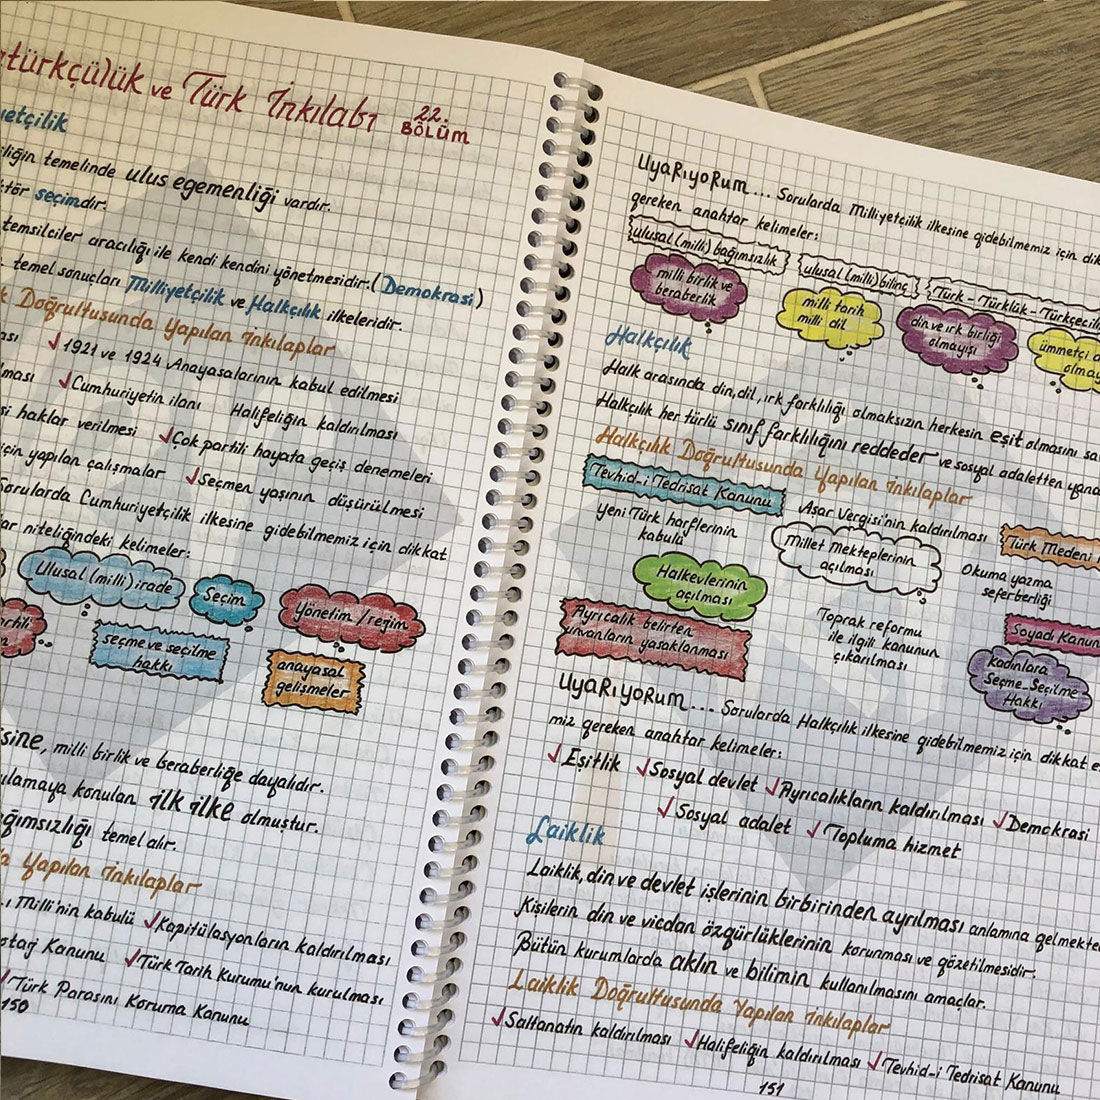 türkçülük ve Türk İnkılabı 22. BÖLÜM
etçilik
temelinde ulus egemenliği vardır.
seçimdir.
temsilciler aracılığı ile kendi kendini yönetmesidir. (Demokrasi)
temel sonuçları Milliyetçilik ve Halkçılık ilkeleridir.
Doğrultusunda Yapılan İnkılaplar
✓1921 ve 1924 Anayasalarının kabul edilmesi
✓Cumhuriyetin ilanı Halifeliğin kaldırılması
haklar verilmesi ✓Çok partili hayata geçiş denemeleri
için yapılan çalışmalar ✓Seçmen yaşının düşürülmesi
Sorularda Cumhuriyetçilik ilkesine gidebilmemiz için dikkat
niteliğindeki kelimeler:
Ulusal (milli) irade
Seçim
Yönetim / rejim
seçme ve seçilme
hakkı
anayasal
gelişmeler
milli birlik ve beraberliğe dayalıdır.
konulan ilk ilke olmuştur.
temel alır.
Yapılan İnkılaplar
Milli'nin kabulü ✓Kapitülasyonların kaldırılması
Kanunu ✓Türk Tarih Kurumu'nun kurulması
✓Türk Parasını Koruma Kanunu
150
UyaRıyoRum... Sorularda Milliyetçilik ilkesine gidebilmemiz için
gereken anahtar kelimeler:
ulusal (milli) bağımsızlık
ulusal (milli) bilinç
Türk - Türklük - Türkçe
milli birlik ve
beraberlik
milli tarih
milli dil
din ve ırk birliği
olmayışı
ümmetçi
Halkçılık
Halk arasında din, dil, ırk farklılığı olmaksızın herkesin eşit olmasını
Halkçılık her türlü sınıf farklılığını reddeder ve sosyal adaletten
Halkçılık Doğrultusunda Yapılan İnkılaplar
Tevhid-i Tedrisat Kanunu
Aşar Vergisi'nin kaldırılması
Türk Medeni
Yeni Türk harflerinin
kabulü
Millet Mekteplerinin
açılması
Okuma yazma
seferberliği
Halkevlerinin
açılması
Ayrıcalık belirten
unvanların yasaklanması
Toprak reformu
ile ilgili kanunun
çıkarılması
Soyadı Kanun
Kadınlara
Seçme-Seçilme
Hakkı
UyaRıyoRum... Sorularda Halkçılık ilkesine gidebilmemiz için dikkat
miz gereken anahtar kelimeler:
✓Eşitlik ✓Sosyal devlet ✓Ayrıcalıkların kaldırılması ✓Demokrasi
✓Sosyal adalet ✓Topluma hizmet
Laiklik
Laiklik, din ve devlet işlerinin birbirinden ayrılması anlamına
Kişilerin din ve vicdan özgürlüklerinin korunması ve gözetilmesidir.
Bütün kurumlarda aklın ve bilimin kullanılmasını amaçlar.
Laiklik Doğrultusunda Yapılan İnkılaplar
✓Saltanatın kaldırılması ✓Halifeliğin kaldırılması ✓Tevhid-i Tedrisat Kanunu
151